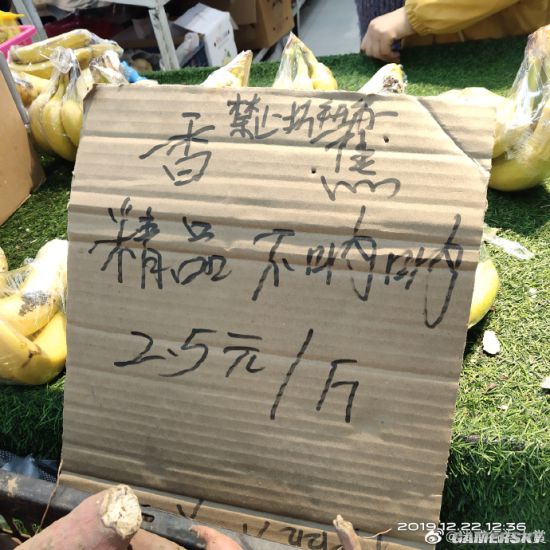 禁止掐
香蕉
精品不呐呐
2.5元/斤
2019.12.22 12:36
GAMERSKY